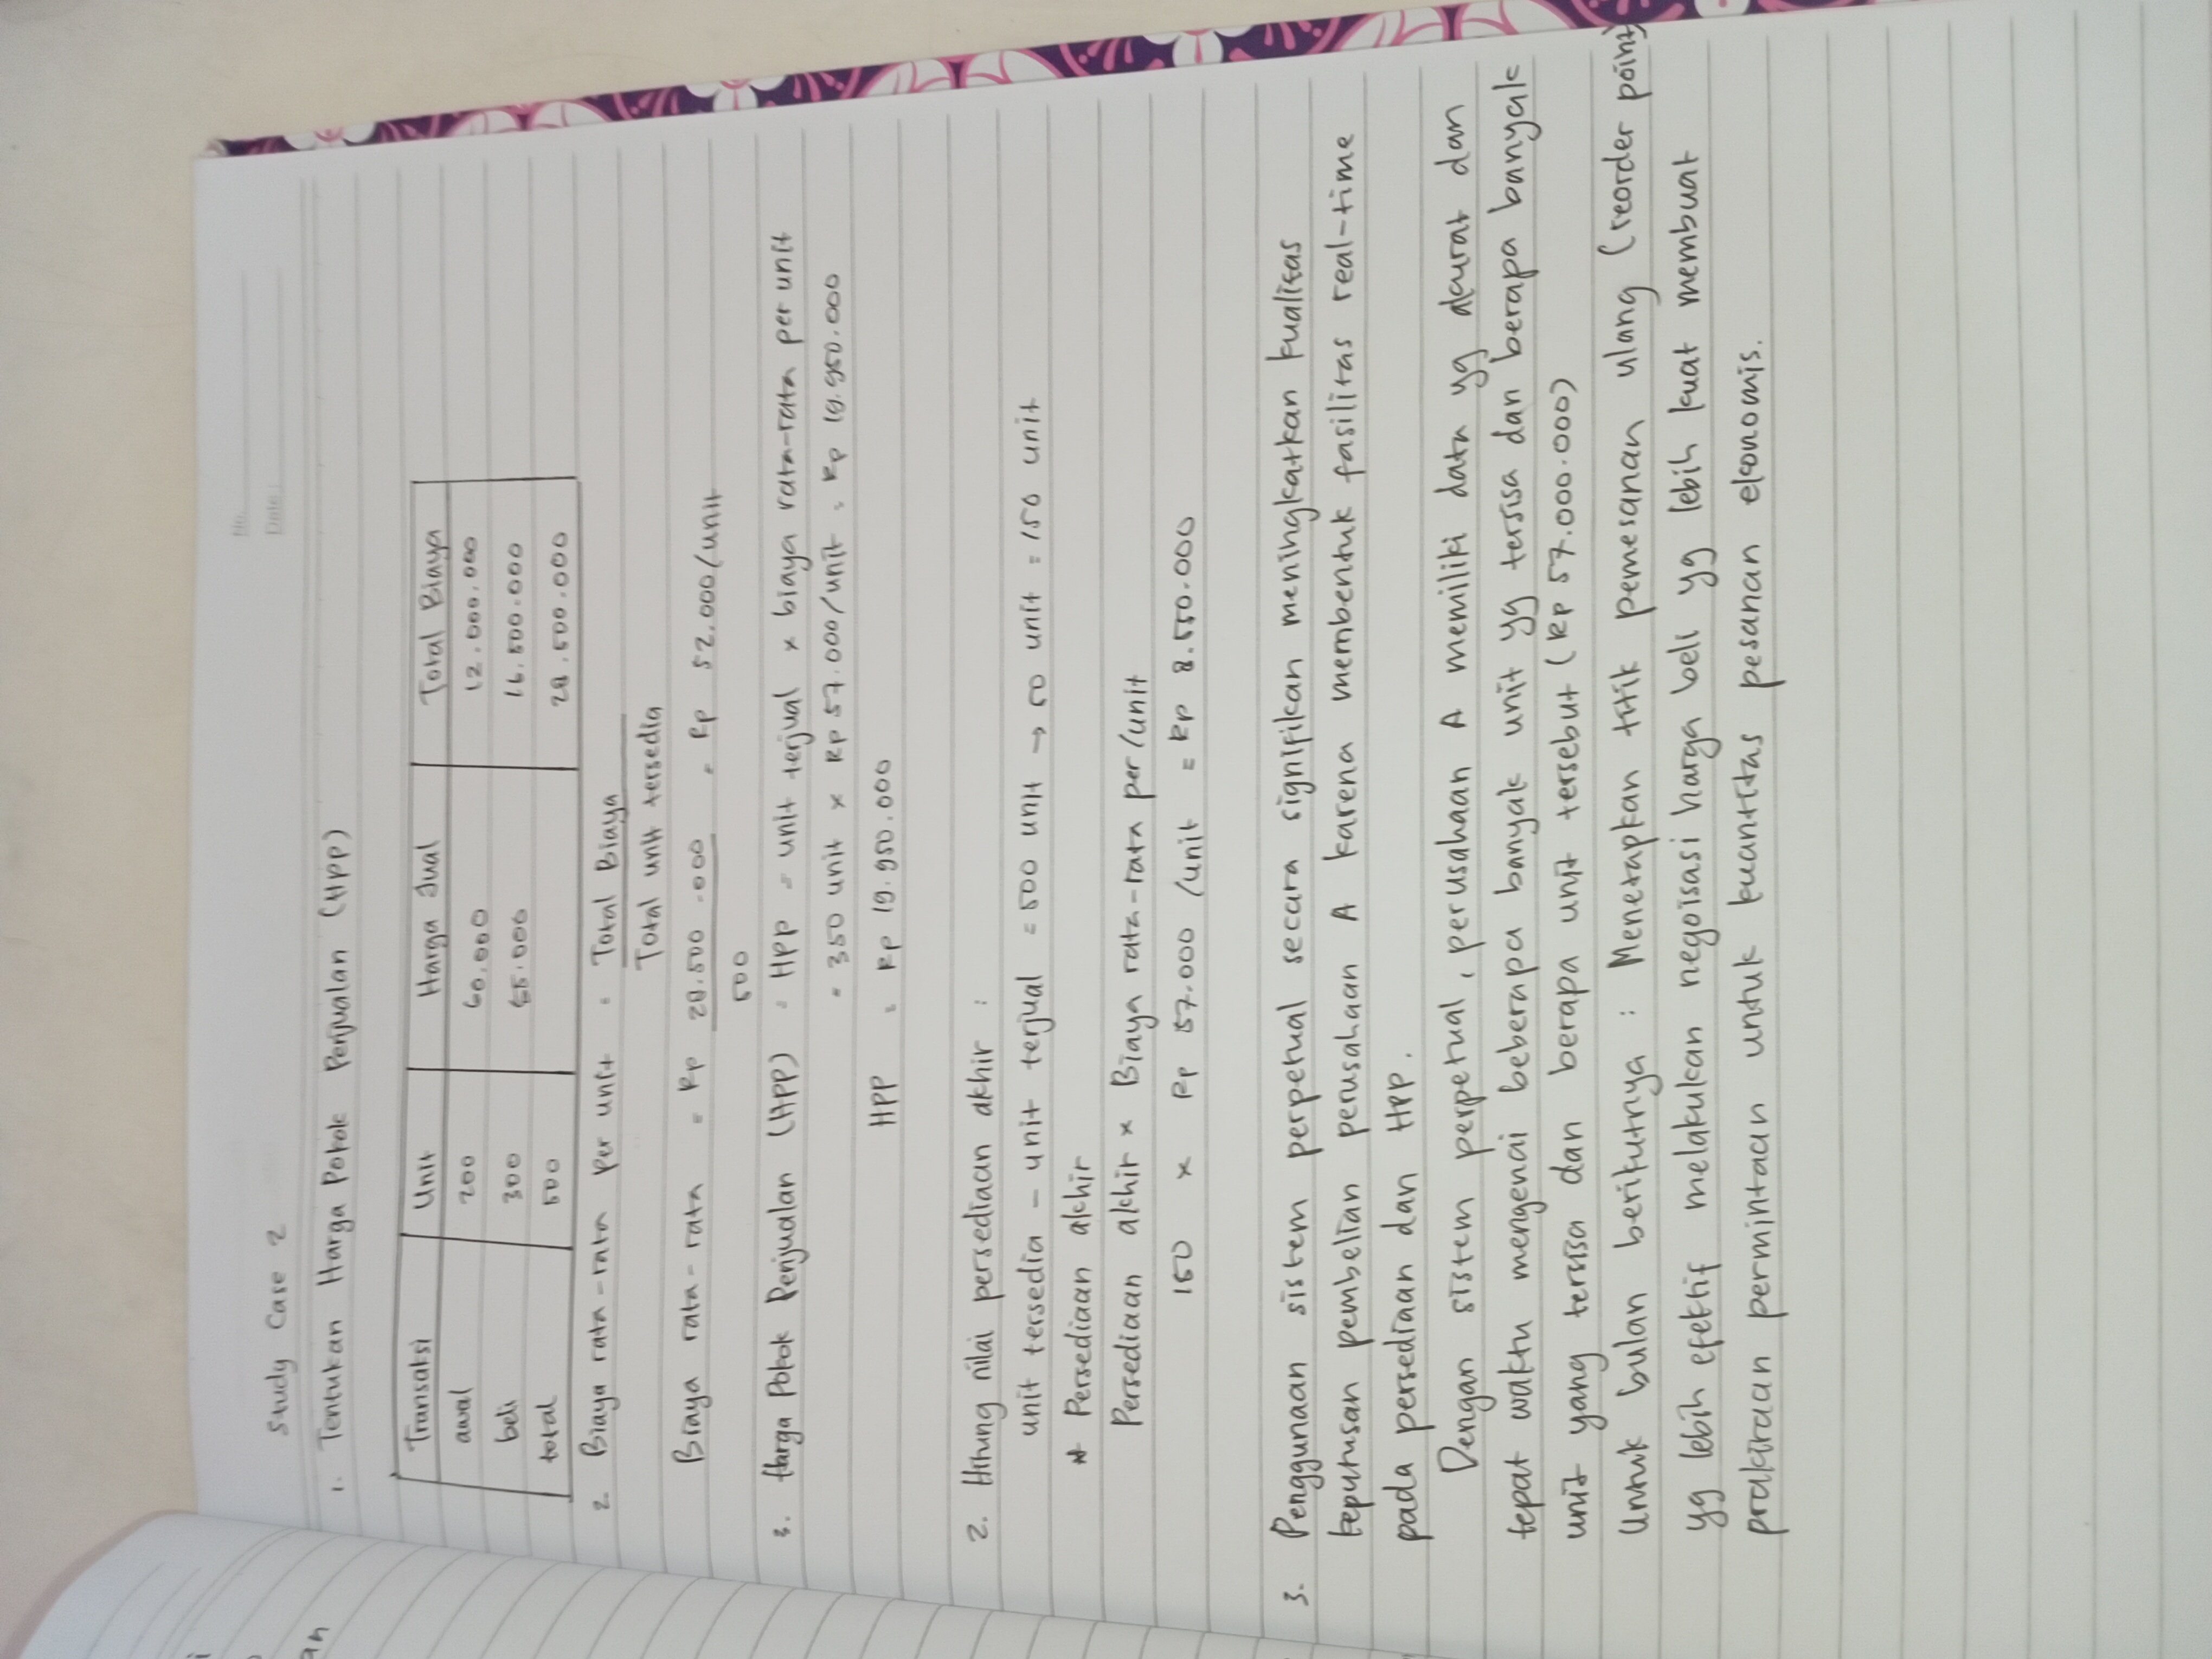 No.
Date:
Study Case 2
1. Tentukan Harga Pokok Penjualan (HPP)
Transaksi Unit Harga Jual Total Biaya
awal 200 60.000 12.000.000
beli 300 55.000 16.500.000
total 500 28.500.000
2. Biaya rata-rata per unit = Total Biaya
Total unit tersedia
Biaya rata-rata = Rp 28.500.000 = Rp 52.000/unit
500
3. Harga Pokok Penjualan (HPP) = HPP = unit terjual x biaya rata-rata per unit
= 350 unit x Rp 57.000/unit = Rp 19.950.000
HPP = Rp 19.950.000
2. Hitung nilai persediaan akhir :
unit tersedia - unit terjual = 500 unit → 50 unit = 150 unit
* Persediaan akhir
Persediaan akhir x Biaya rata-rata per/unit
150 x Rp 57.000 /unit = Rp 8.550.000
3. Penggunaan sistem perpetual secara signifikan meningkatkan kualitas
keputusan pembelian perusahaan A karena membentuk fasilitas real-time
pada persediaan dan HPP.
Dengan sistem perpetual, perusahaan A memiliki data yg akurat dan
tepat waktu mengenai beberapa banyak unit yg tersisa dan berapa banyak
unit yang tersisa dan berapa unit tersebut (Rp 57.000.000)
Untuk bulan berikutnya : Menetapkan titik pemesanan ulang (reorder point)
yg lebih efektif melakukan negoisasi harga beli yg lebih kuat membuat
prakiraan permintaan untuk kuantitas pesanan ekonomis.
an